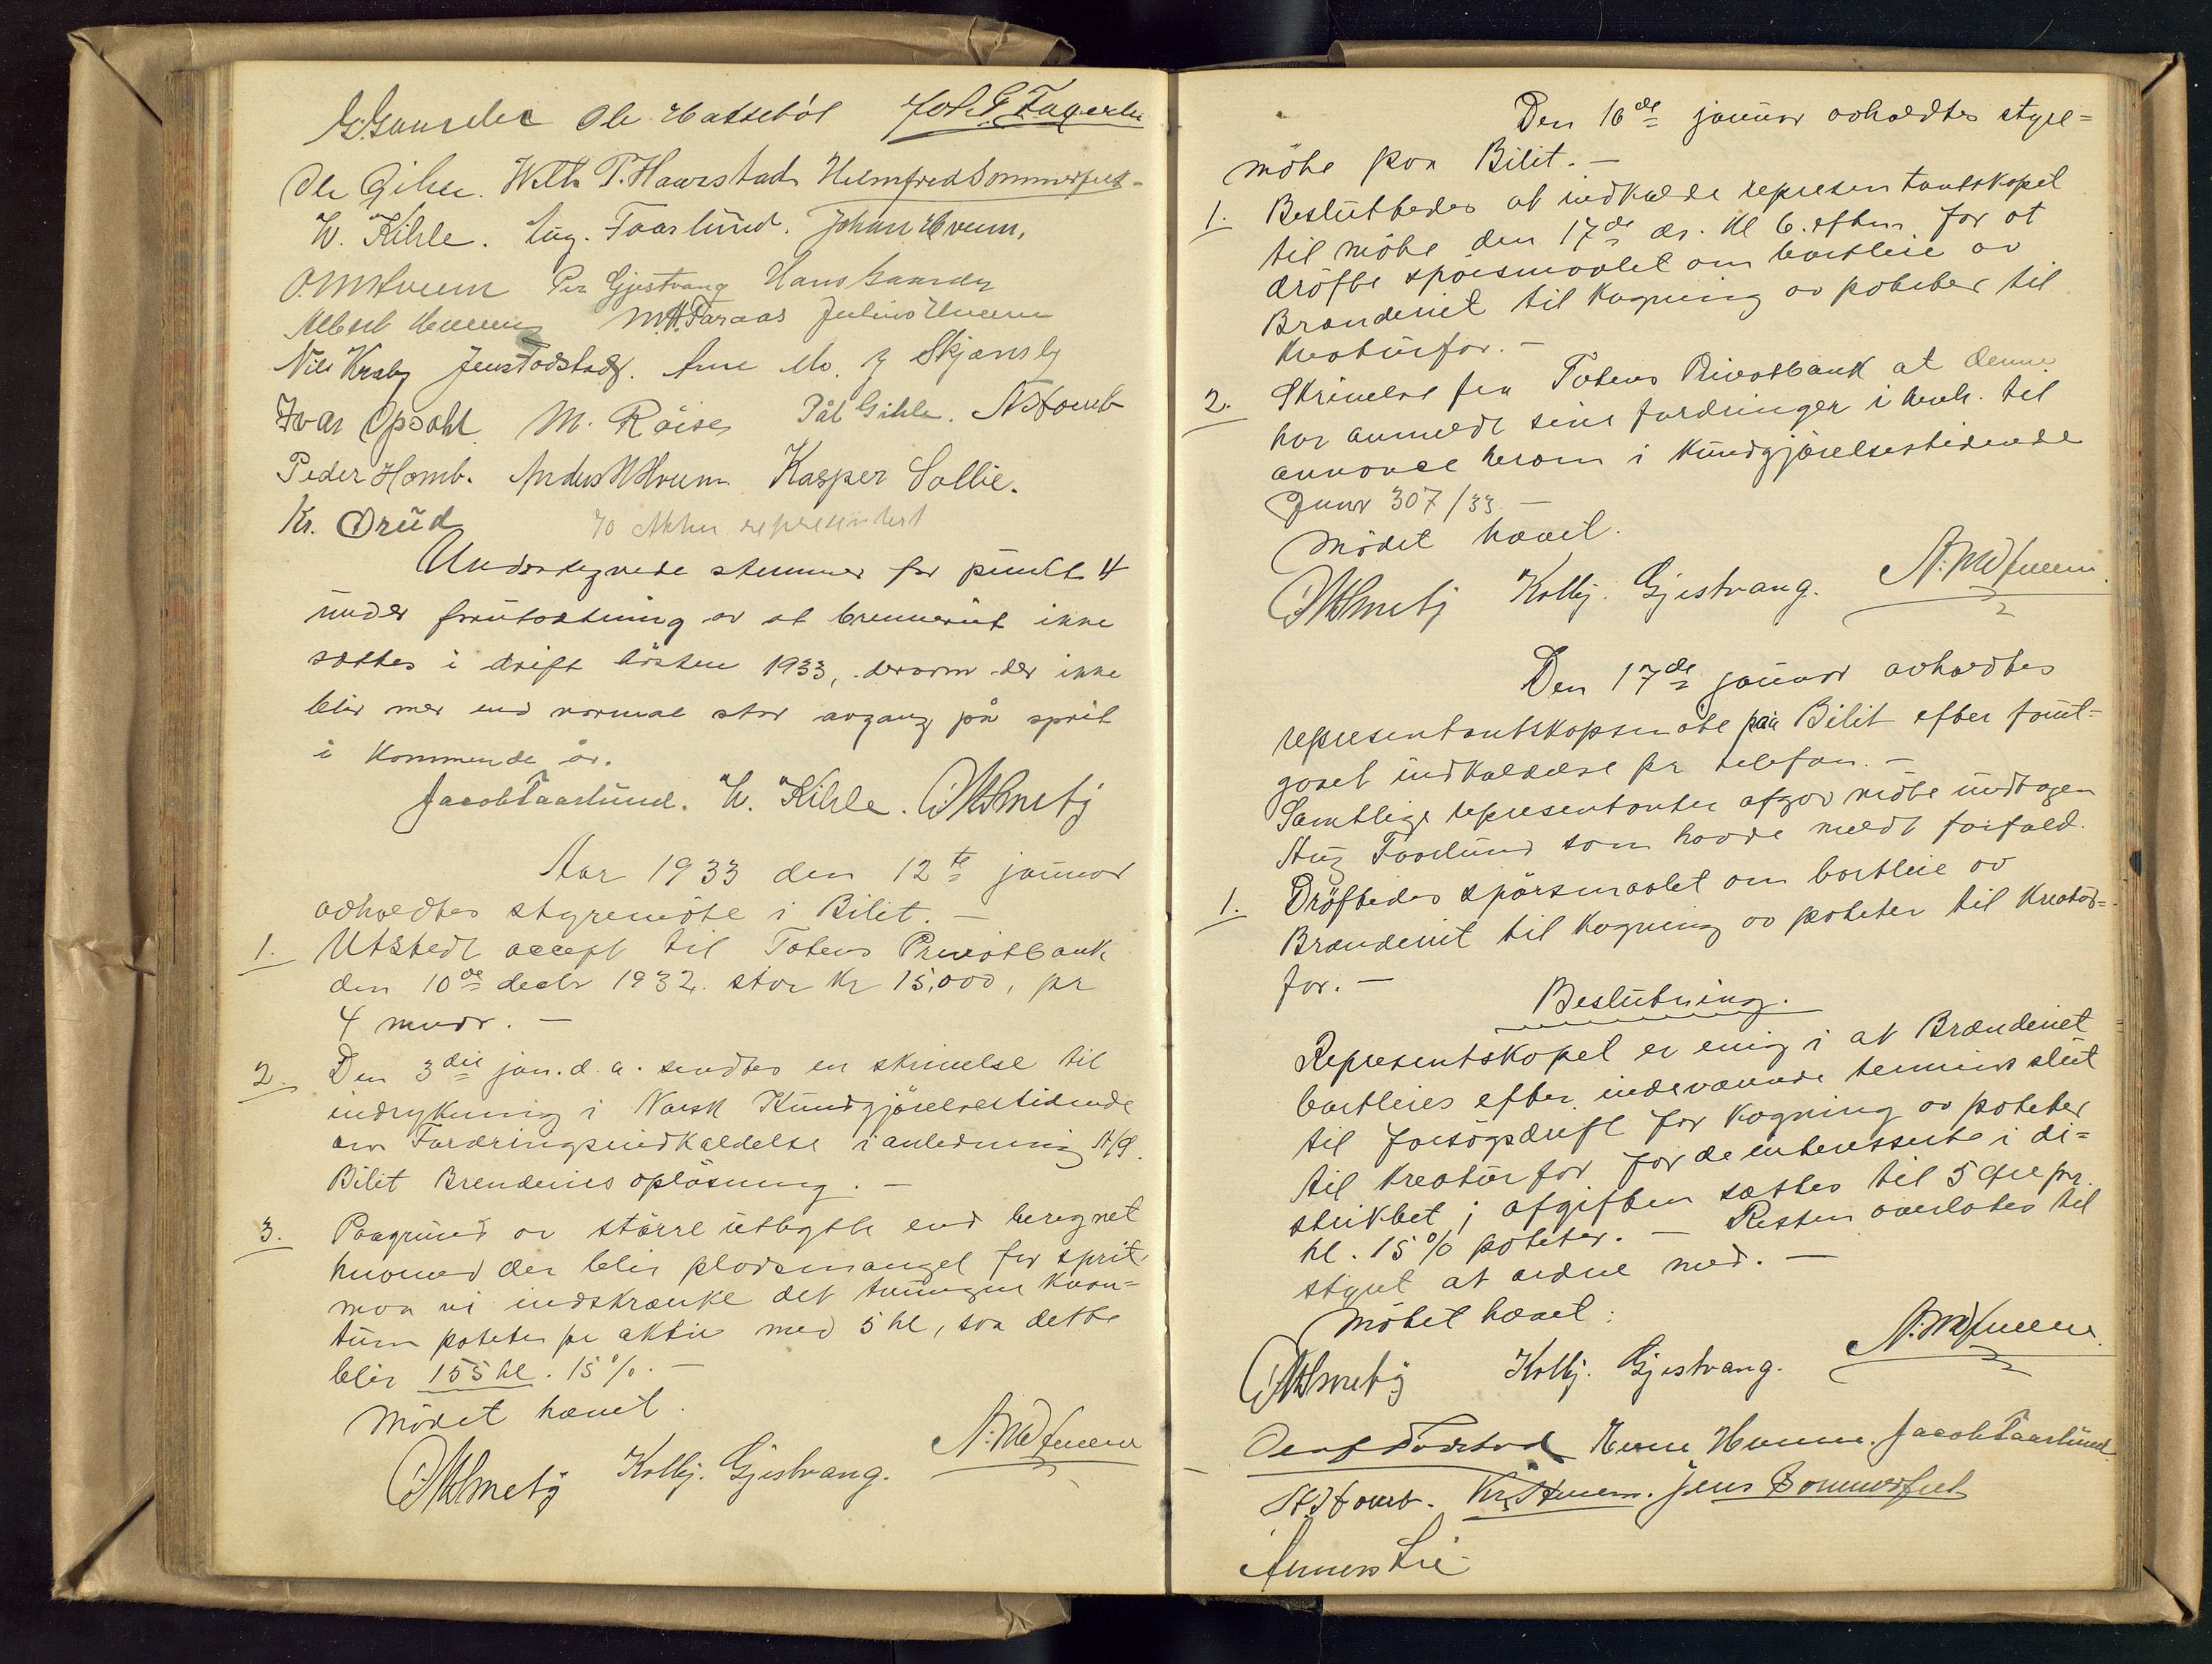 Ole Hasselöl Joh. G. Fagerli
Ole Gihle. Wilh. P. Haarstad Helmfred Sommerfelt
W. Kihle. Aug. Faarlund. Johan Hveem,
O. M. Hveem Per Gjestvang Hans
Albert Hveem M. H. Faraas Julius Hveem
Nils Kraby Jens Fodstad. Arne Mo. Skjønsby
Ivar Opsahl M. Röise Pål Gihle. N Homb
Peder Homb. Anders Hveem Kasper Sollie.
Kr. Drüd 70 Aktier representert
Undertegnede stemmer for punkt 4
under forutsætning av at brenneriet ikke
sættes i drift hösten 1933, dersom der ikke
blir mer end normal stor avgang på sprit
i kommende år.
Jacob Faarlund. W. Kihle.
Aar 1933 den 12te januar
avholdtes styremöte i Bilit. –
1. Utstedt accept til Totens Privatbank
den 10de decbr 1932. stor kr 15,000, pr
4 mndr. –
2. Den 3die jan. d. a. sendtes en skrivelse til
indrykning i Norsk Kundgjörelsestidende
om Fordringsindkaldelse i anledning A/S.
Bilit Brenderies oplösning. –
3. Paagrund av större utbytte end beregnet
hvorved der blir plassmangel for sprit,
maa vi indskrænke det tvungne kvan=
tum poteter pr aktie med 5 hl, saa dette
blir 155 hl. 15%. –
Mödet hævet.
Kolbj. Gjestvang. A. M. Hveem
Den 16de januar avholdtes styre=
möte paa Bilit. –
1. Beslüttedes at indkalde representantskapet
til möte den 17de ds. kl 6. eftm. for at
dröfte spörsmaalet om bortleie av
Brænderiet til kogning av poteter til
kreatürfor. –
2. Skrivelse fra Totens Privatbank at denne
har anmeldt sine fordringer i henh. til
annonce herom i Kundgjörelsestidende
Jnnr 307/33. –
Mödet hævet.
Kolbj. Gjestvang. A. M. Hveem.
Den 17de januar avholdtes
representantskapsmöte paa Bilit efter forut=
gaaet indkaldelse pr telefon. –
Samtlige representanter afgav möte undtagen
Aug Faarlund som havde meldt forfald.
1. Dröftedes spörsmaalet om bortleie av
Brænderiet til kogning av poteter til kreatür=
for. –
Beslütning.
Representskapet er enig i at Brænderiet
bortleies efter indeværende termins slut
til forsögsdrift for kogning av poteter
til kreatürfor for de interesserte i di=
striktet, afgiften sættes til 5 öre pr.
hl. 15% poteter. – Resten overlates til
styret at ordne med. –
Mötet hævet:
Kolbj. Gjestvang. A. M. Hveem.
Olaf Fodstad Hveem. Jacob Faarlund
Homb. Kr. Hveem. Jens Sommerfelt
Anners Lie